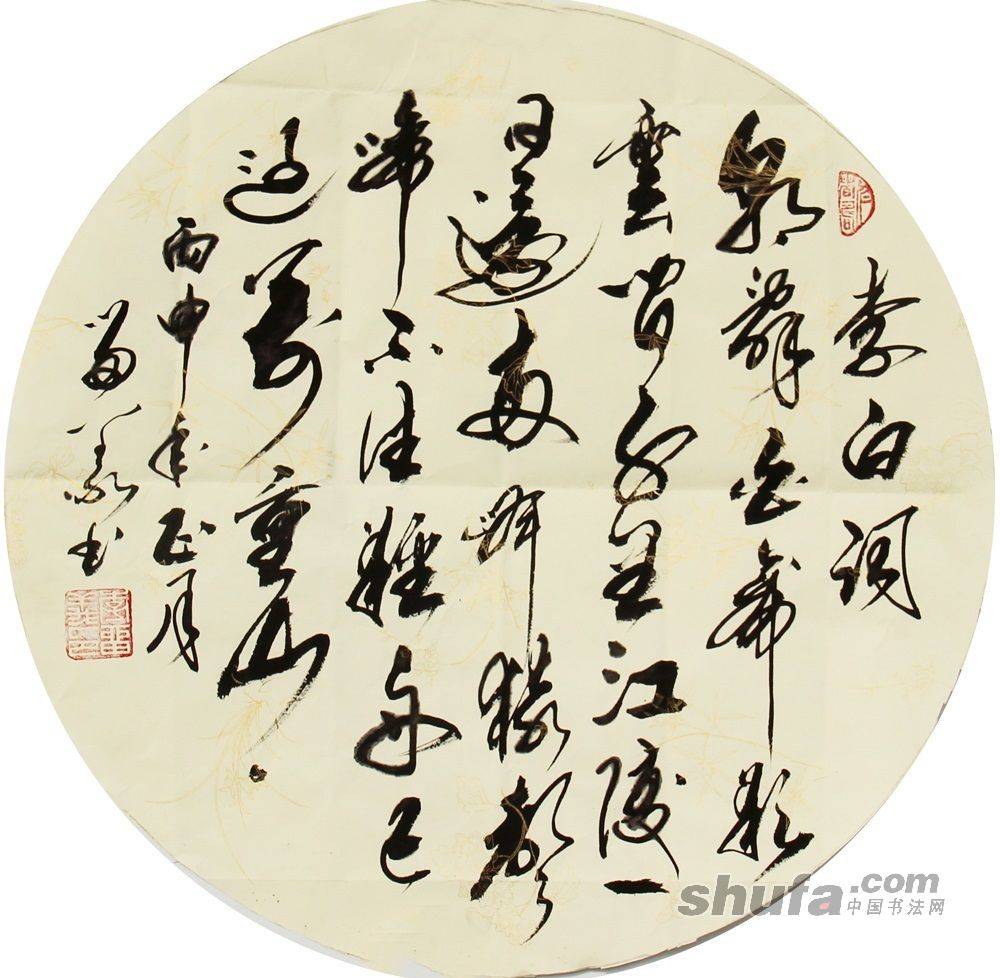 李白詞
朝辭白帝彩
雲間千里江陵一
日還兩岸猿聲
啼不住輕舟已
過萬重山
丙申年正月
留義书
shufa.com
中国书法网